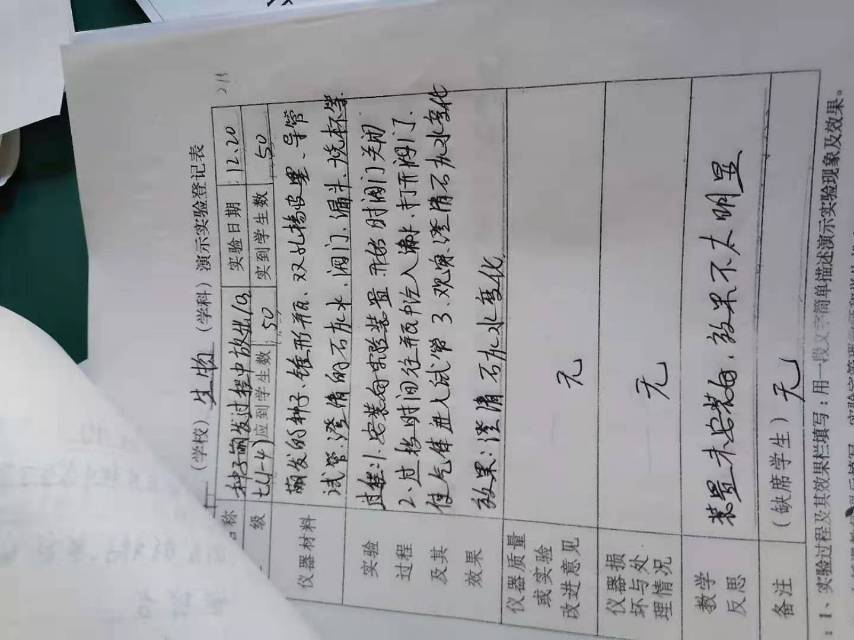 (学校) 生物 (学科) 演示实验登记表
称 种子萌发过程中放出 实验日期 12.20
级 七(1-4) 应到学生数 50 实到学生数 50
仪器材料 萌发的种子、锥形瓶、双孔橡皮塞、导管
试管 澄清的石灰水、阀门、漏斗、烧杯等
实验过程及其效果 过程:1.安装好实验装置 开始时阀门关闭
2.过段时间往瓶中注入清水,打开阀门.
使气体进入试管 3.观察澄清石灰水变化
效果:澄清石灰水变化
仪器质量或实验改进意见 无
仪器损坏与处理情况 无
教学反思 装置未安装好,效果不太明显
备注 (缺席学生) 无
:1、实验过程及其效果栏填写:用一段文字简单描述演示实验现象及效果。